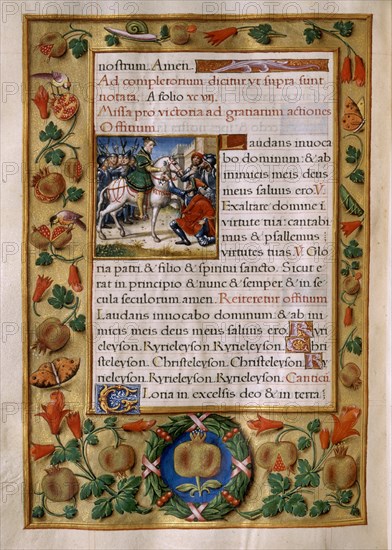 nostrum. Amen.
Ad completorium dicitur vt supra sunt
notata. A folio xc vij.
Missa pro victoria ad gratiarum actiones
Offitium.
Laudans inuoca
bo dominum: & ab
inimicis meis deus
meus saluus ero. V.
Exaltare domine i
virtute tua: cantabi
mus & psallemus
virtutes tuas. V. Glo
ria patri. & filio & spiritui sancto. Sicut e
rat in principio & nunc & semper & in se
cula seculorum amen. Reiteretur offitium
Laudans inuocabo dominum. & ab ini
micis meis deus meus saluus ero. Kyri
eleyson. Kyrieleyson. Kyrieleyson. Chri
steleyson. Christeleyson. Christeleyson. Ky
rieleyson. Kyrieleyson. Kyrieleyson. Cantici
Gloria in excelsis deo & in terra